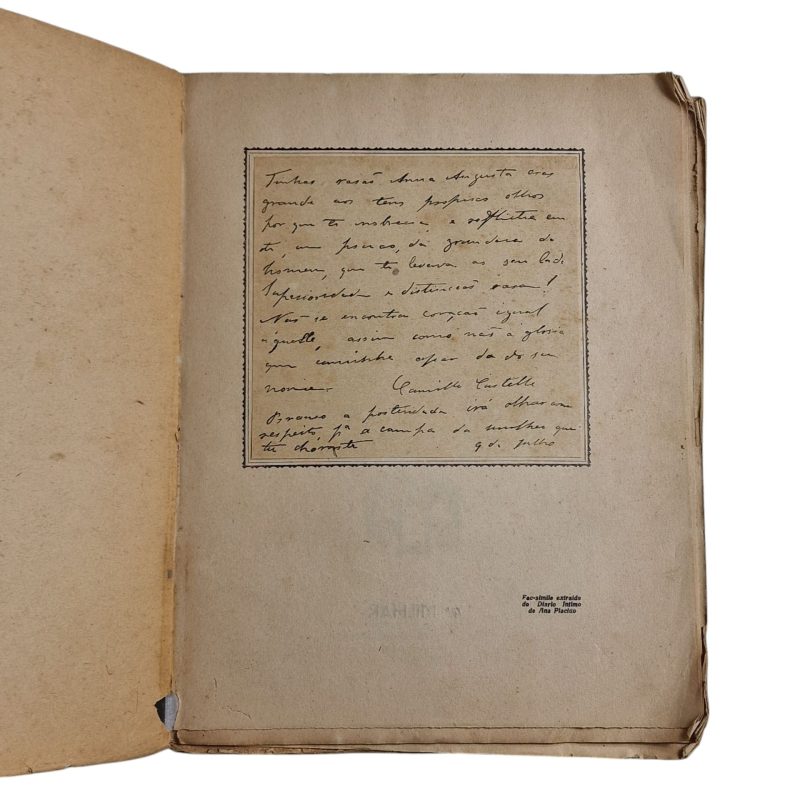 Tinhas rasaõ Anna Augusta eras
grande aos teus proprios olhos
por que te mostrava e reflectia em
ti, um pouco, da grandeza do
homem, que te levava ao seu lado
Superioridade e distincçaõ rara!
Naõ se encontra coraçaõ igual
aquelle, assim como naõ a gloria
que caminhe a par da do seu
nome. Camillo Castello
Branco a posteridade irá olhar com
respeito, pa a campa da mulher que
tu choraste 9 de Julho
Fac-simile extraido
do Diario Intimo
de Ana Placido
MILHAR